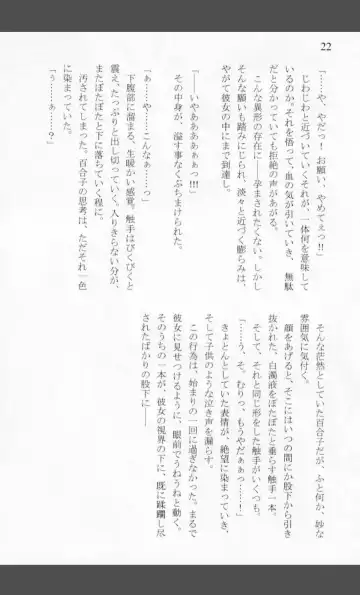 22
「……や、やだっ！　お願い、やめてぇっ!!」
じわじわと近づいていくそれが、一体何を意味して
いるのか。それを悟って、血の気が引いていき、無駄
だと分かっていても拒絶の声があがる。
こんな異形の存在に――孕まされたくない。しかし
そんな願いも踏みにじられ、淡々と近づく膨らみは、
やがて彼女の中にまで到達し。
「――いやああああぁぁっ!!!」
その中身が、溢す事なくぶちまけられた。
「ぁ……や……こんなぁ……っ」
下腹部に溜まる、生暖かい感覚。触手はびくびくと
震え、たっぷりと出し切っていく、入りきらない分が、
またぼたぼたと下に落ちていく程に。
汚されてしまった。百合子の思考は、ただそれ一色
に染まっていた。
「ぅ……ぁ……？」
そんな茫然としていた百合子だが、ふと何か、妙な
雰囲気に気付く。
顔をあげると、そこにはいつの間にか股下から引き
抜かれた、白濁液をぼたぼたと垂らす触手一本。
そして、それと同じ形をした触手がいくつも。
「……う、そ、むりっ、もうやだぁぁっ……！」
きょとんとしていた表情が、絶望に染まっていき、
そして子供のような泣き声を漏らす。
この行為は、始まりの一回に過ぎなかった。まるで
彼女に見せつけるように、眼前でうねうねと動く。
そのうちの一本が、彼女の視界の下で、既に蹂躙し尽
されたばかりの股下に――